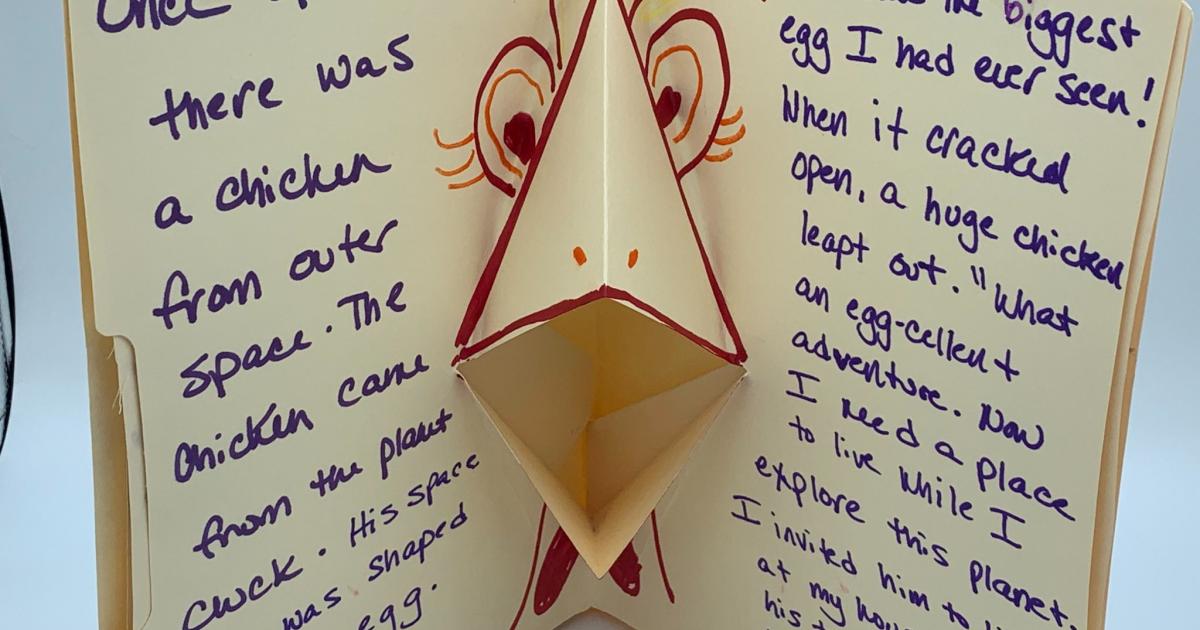 Once
there was
a chicken
from outer
space. The
chicken came
from the planet
cluck. His space
was shaped
egg.
the biggest
egg I had ever seen!
When it cracked
open, a huge chicken
leapt out. "What
an egg-cellent
adventure. Now
I need a place
to live while I
explore this planet.
I invited him to
at my
his